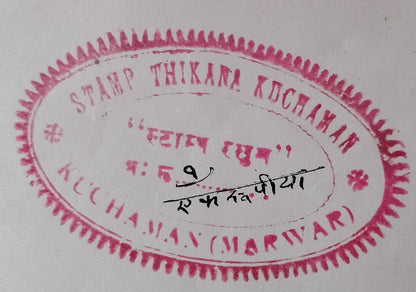 STAMP THIKANA KUCHAMAN
"स्टाम्प रसुम"
व: रु १
एक रूपीया
KUCHAMAN (MARWAR)